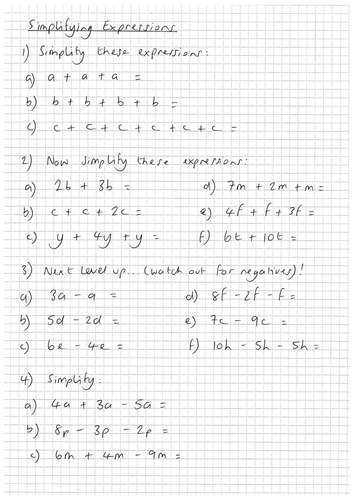 Simplifying Expressions
1) Simplify these expressions:
a) a + a + a =
b) b + b + b + b =
c) c + c + c + c + c + c =
2) Now simplify these expressions:
a) 2b + 3b = d) 7m + 2m + m =
b) c + c + 2c = e) 4f + f + 3f =
c) y + 4y + y = f) 6t + 10t =
3) Next level up... (watch out for negatives)!
a) 3a - a = d) 8f - 2f - f =
b) 5d - 2d = e) 7c - 9c =
c) 6e - 4e = f) 10h - 5h - 5h =
4) Simplify:
a) 4a + 3a - 5a =
b) 8p - 3p - 2p =
c) 6m + 4m - 9m =